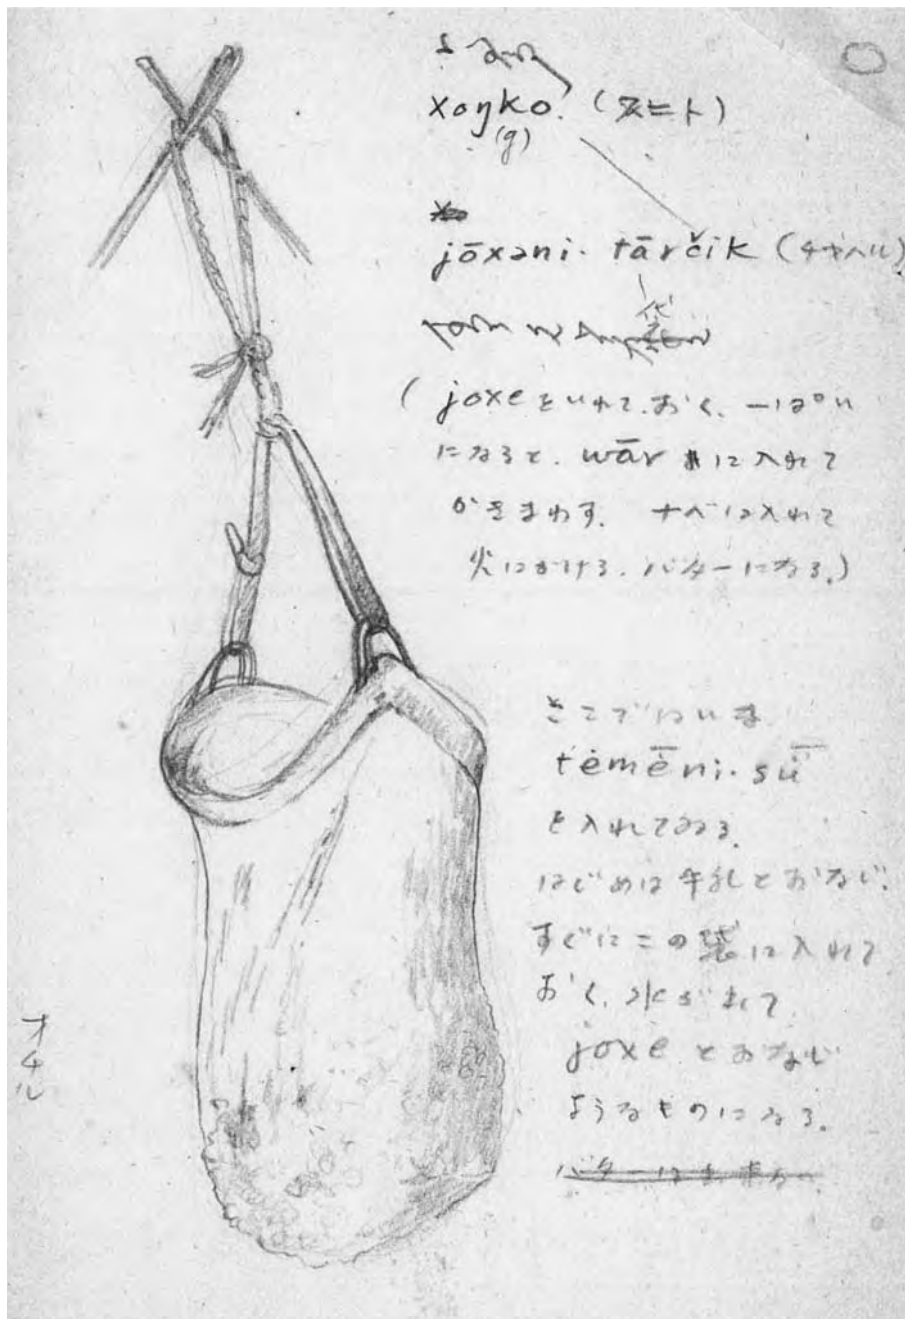 xoŋko. (スニト)
(g)
jōxəni・tārčik (チャハル)
袋
(joxeをいれておく、一ぱい
になると、wārに入れて
かきまわす。ナベに入れて
火にかける。バターになる。)
ここではいま
tėmēni・sǖ
を入れてある。
はじめは牛乳とおなじ。
すぐにこの袋に入れて
おく、水がまれて
joxeとおなじ
ようなものになる。
オチル